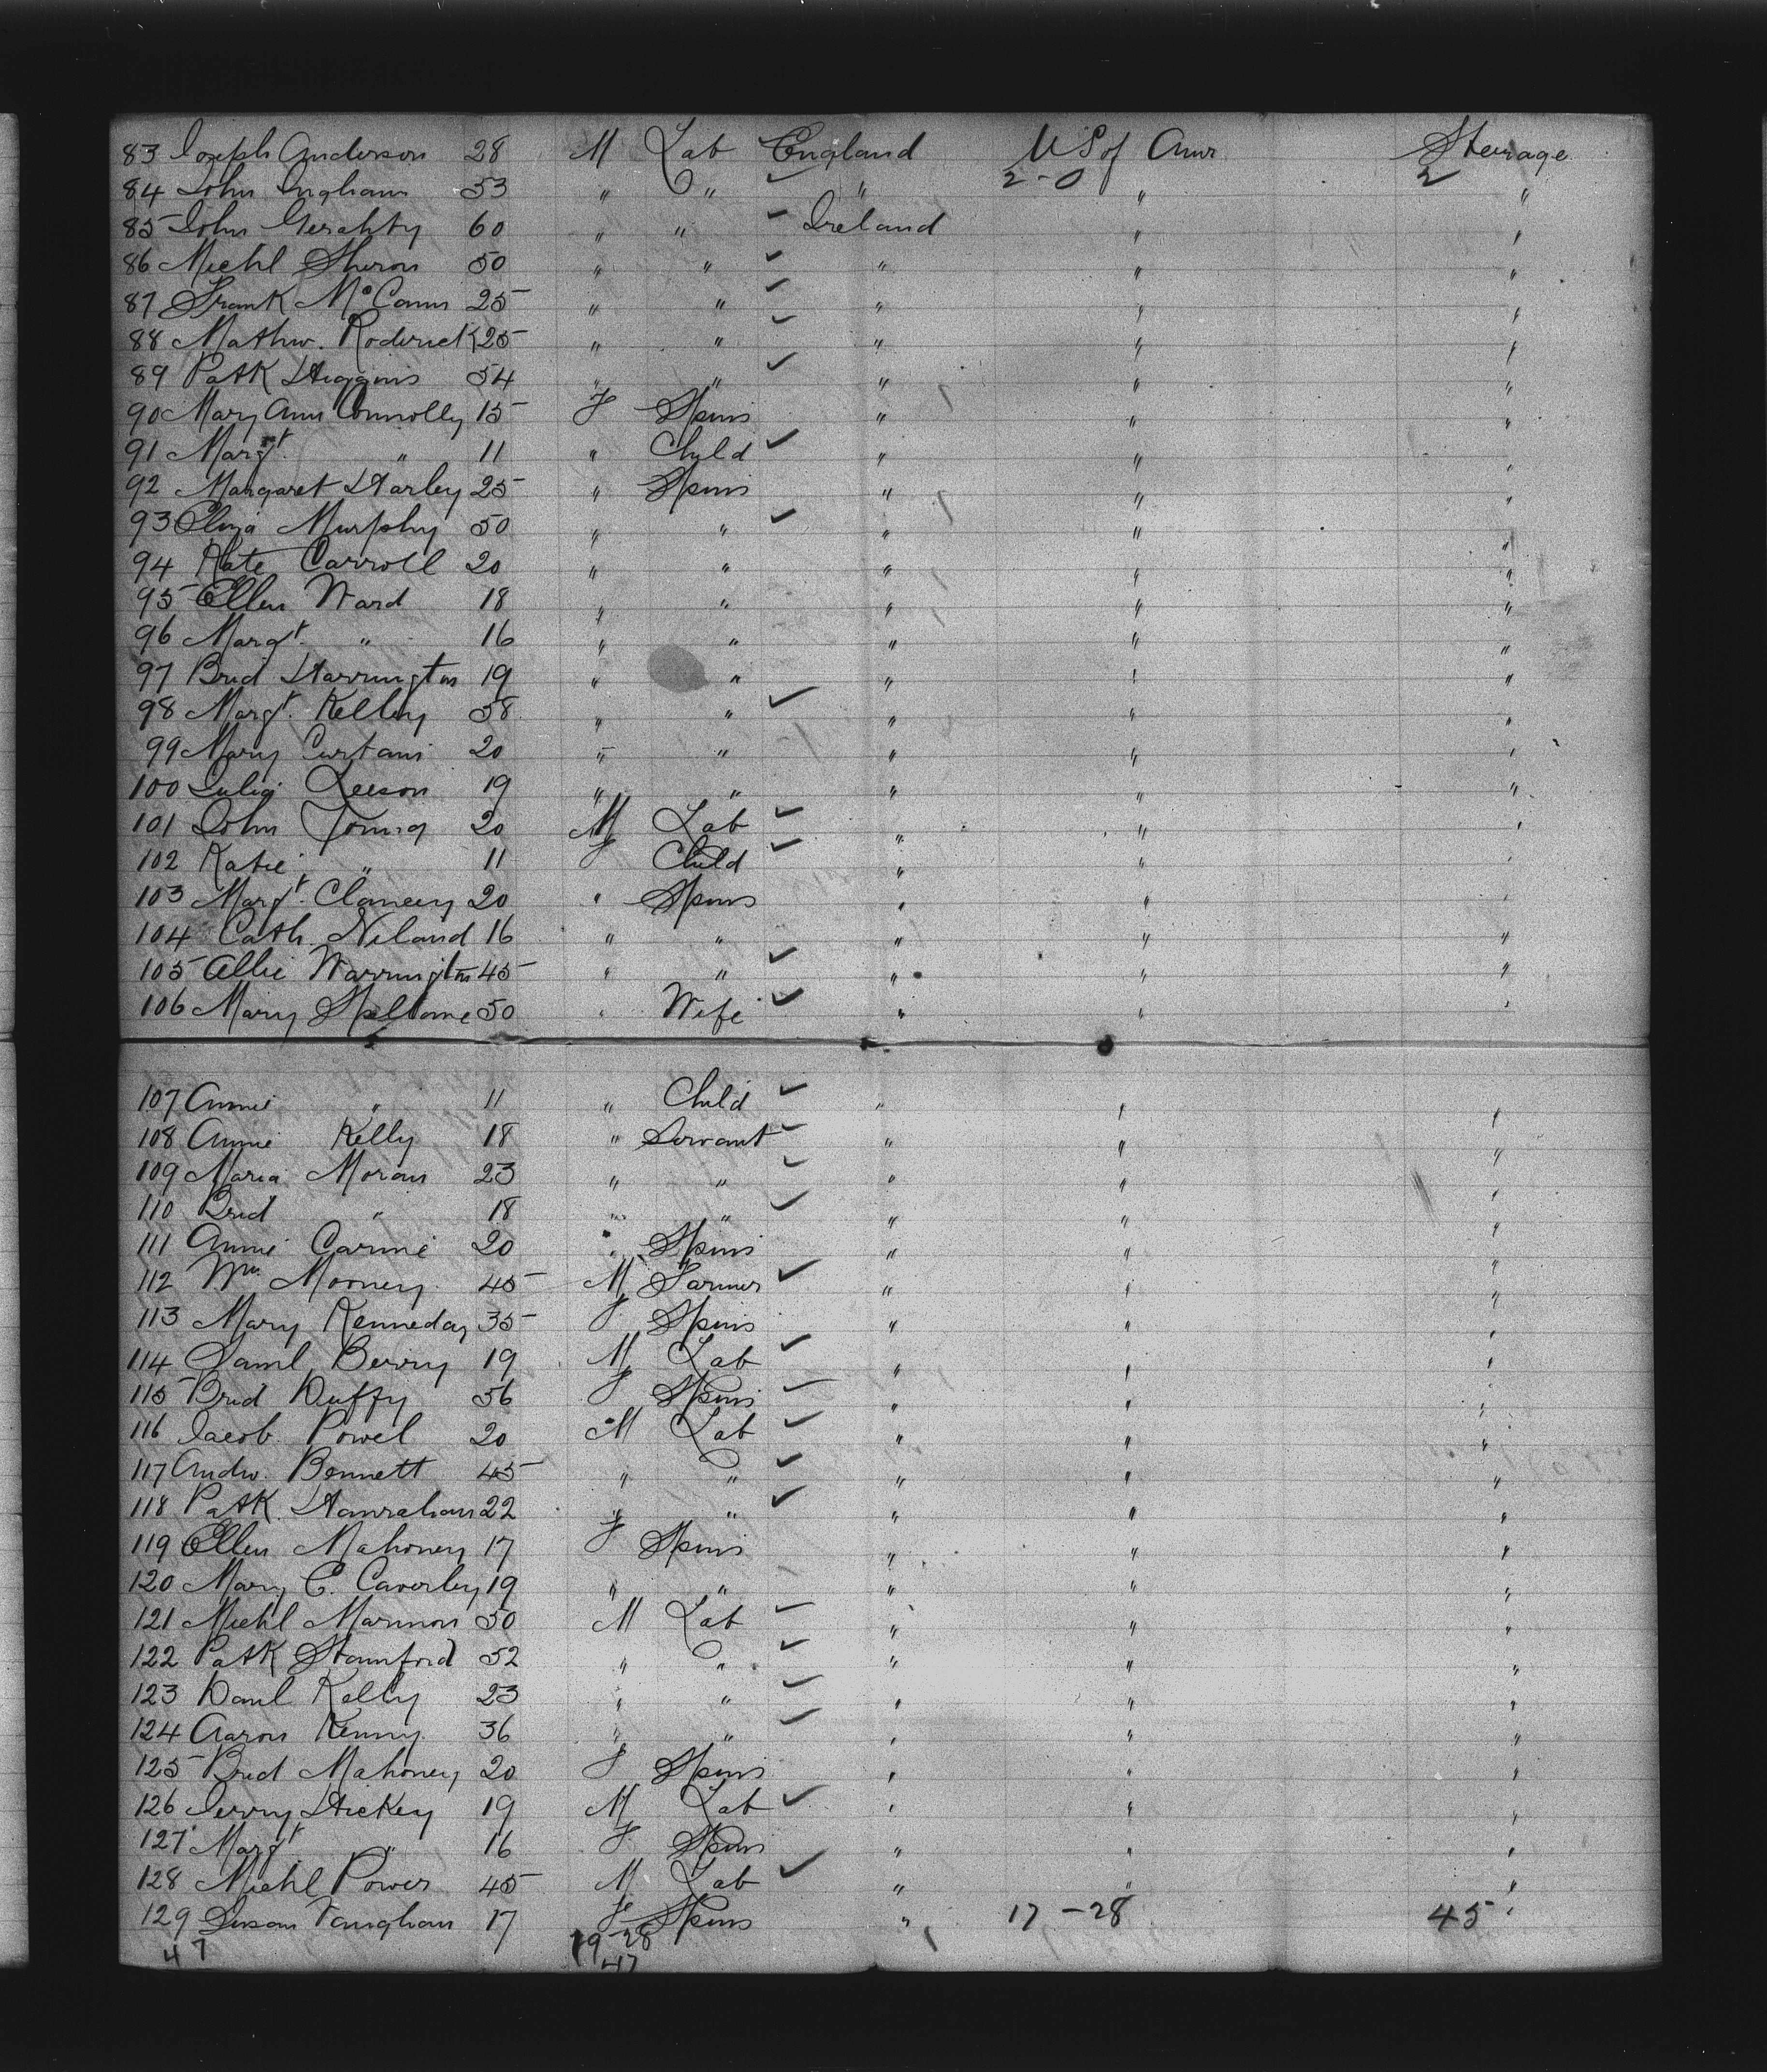 83 Joseph Anderson 28 M Lab England US of Amr Steerage
84 John Ingham 53 " " " 2-0 " 2 "
85 John Gerahty 60 " " Ireland " "
86 Michl Sheron 50 " " " " "
87 Frank McCann 25 " " " " "
88 Mathw. Roderick 25 " " " " "
89 Patk Higgins 54 " " " " "
90 Mary Ann Connolly 15 F Spins " " "
91 Margt. " 11 " Child " " "
92 Margaret Harley 25 " Spins " " "
93 Eliza Murphy 50 " " " " "
94 Kate Carroll 20 " " " " "
95 Ellen Ward 18 " " " " "
96 Margt. " 16 " " " " "
97 Brid Harrington 19 " " " " "
98 Margt. Kelley 58 " " " " "
99 Mary Curtain 20 " " " " "
100 Julia Leeson 19 " " " " "
101 John Young 20 M Lab " " "
102 Katie " 11 F Child " " "
103 Margt. Clancey 20 " Spins " " "
104 Cath. Niland 16 " " " " "
105 Allie Warrington 45 " " " " "
106 Mary 50 " Wife " " "
107 Annie " 11 " Child " " "
108 Annie Kelly 18 " Servant " " "
109 Maria Moran 23 " " " " "
110 Brid " 18 " " " " "
111 Annie 20 " Spins " " "
112 Wm. Mooney 45 M Farmer " " "
113 Mary Kenneday 35 F Spins " " "
114 Saml Berry 19 M Lab " " "
115 Brid Duffy 56 F Spins " " "
116 Jacob Powel 20 M Lab " " "
117 Andw. Bennett 45 " " " " "
118 Patk. Hanrahan 22 " " " " "
119 Ellen Mahoney 17 F Spins " " "
120 Mary E. Caverley 19 " " " " "
121 Michl Marmon 50 M Lab " " "
122 Patk Stamford 52 " " " " "
123 Danl Kelly 23 " " " " "
124 Aaron Kenny 36 " " " " "
125 Brid Mahoney 20 F Spins " " "
126 Jerry Hickey 19 M Lab " " "
127 Margt " 16 F Spins " " "
128 Michl Power 45 M Lab " " "
129 Susan Vaughan 17 F Spins " 17-28 45 "
47 19-28
47